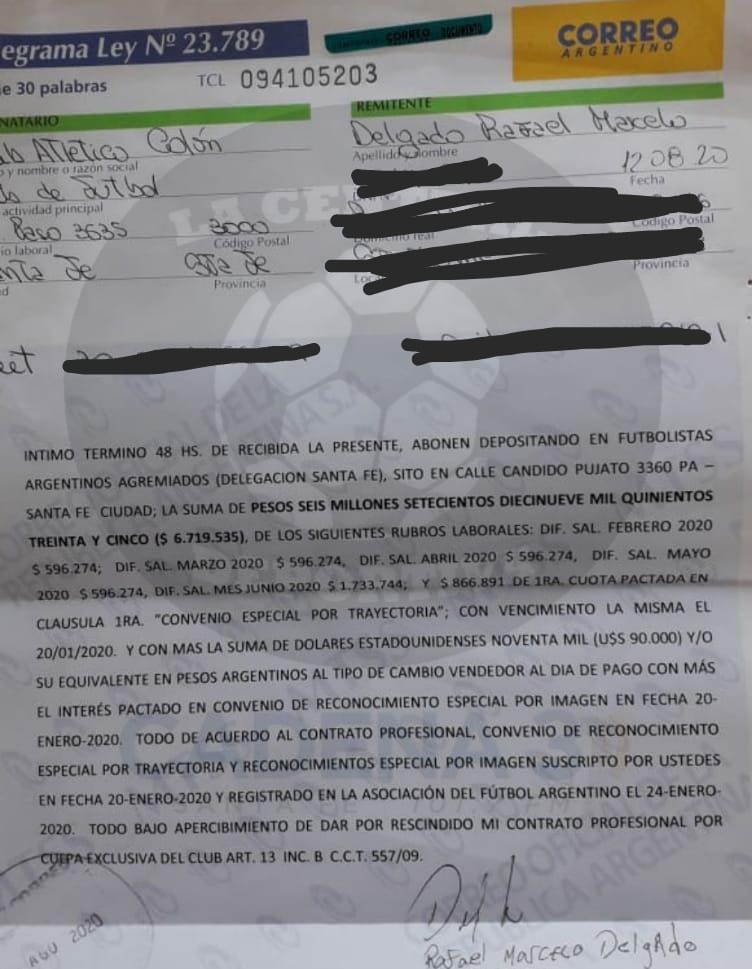 egrama Ley Nº 23.789
CORREO DOCUMENTO
CORREO
ARGENTINO
e 30 palabras
TCL 094105203
NATARIO
REMITENTE
ub Atletico Colón
Delgado Rafael Marcelo
y nombre o razón social
Apellido y Nombre
12 08 20
Fecha
de Futbol
actividad principal
Código Postal
Paso 3635 3000
io laboral
Código Postal
Domicilio real
nta Fe Sta Fe
Provincia
Provincia
d
Loc
LA CENTRAL
INTIMO TERMINO 48 HS. DE RECIBIDA LA PRESENTE, ABONEN DEPOSITANDO EN FUTBOLISTAS
ARGENTINOS AGREMIADOS (DELEGACION SANTA FE), SITO EN CALLE CANDIDO PUJATO 3360 PA –
SANTA FE CIUDAD; LA SUMA DE PESOS SEIS MILLONES SETECIENTOS DIECINUEVE MIL QUINIENTOS
TREINTA Y CINCO ($ 6.719.535), DE LOS SIGUIENTES RUBROS LABORALES: DIF. SAL. FEBRERO 2020
$ 596.274; DIF. SAL. MARZO 2020 $ 596.274, DIF. SAL. ABRIL 2020 $ 596.274, DIF. SAL. MAYO
2020 $ 596.274, DIF. SAL. MES JUNIO 2020 $ 1.733.744; Y $ 866.891 DE 1RA. CUOTA PACTADA EN
CLAUSULA 1RA. "CONVENIO ESPECIAL POR TRAYECTORIA"; CON VENCIMIENTO LA MISMA EL
20/01/2020. Y CON MAS LA SUMA DE DOLARES ESTADOUNIDENSES NOVENTA MIL (U$S 90.000) Y/O
SU EQUIVALENTE EN PESOS ARGENTINOS AL TIPO DE CAMBIO VENDEDOR AL DIA DE PAGO CON MÁS
EL INTERÉS PACTADO EN CONVENIO DE RECONOCIMIENTO ESPECIAL POR IMAGEN EN FECHA 20-
ENERO-2020. TODO DE ACUERDO AL CONTRATO PROFESIONAL, CONVENIO DE RECONOCIMIENTO
ESPECIAL POR TRAYECTORIA Y RECONOCIMIENTOS ESPECIAL POR IMAGEN SUSCRIPTO POR USTEDES
EN FECHA 20-ENERO-2020 Y REGISTRADO EN LA ASOCIACIÓN DEL FÚTBOL ARGENTINO EL 24-ENERO-
2020. TODO BAJO APERCIBIMIENTO DE DAR POR RESCINDIDO MI CONTRATO PROFESIONAL POR
CULPA EXCLUSIVA DEL CLUB ART. 13 INC. B C.C.T. 557/09.
CADENA 3
AGO 2020
Rafael Marcelo Delgado